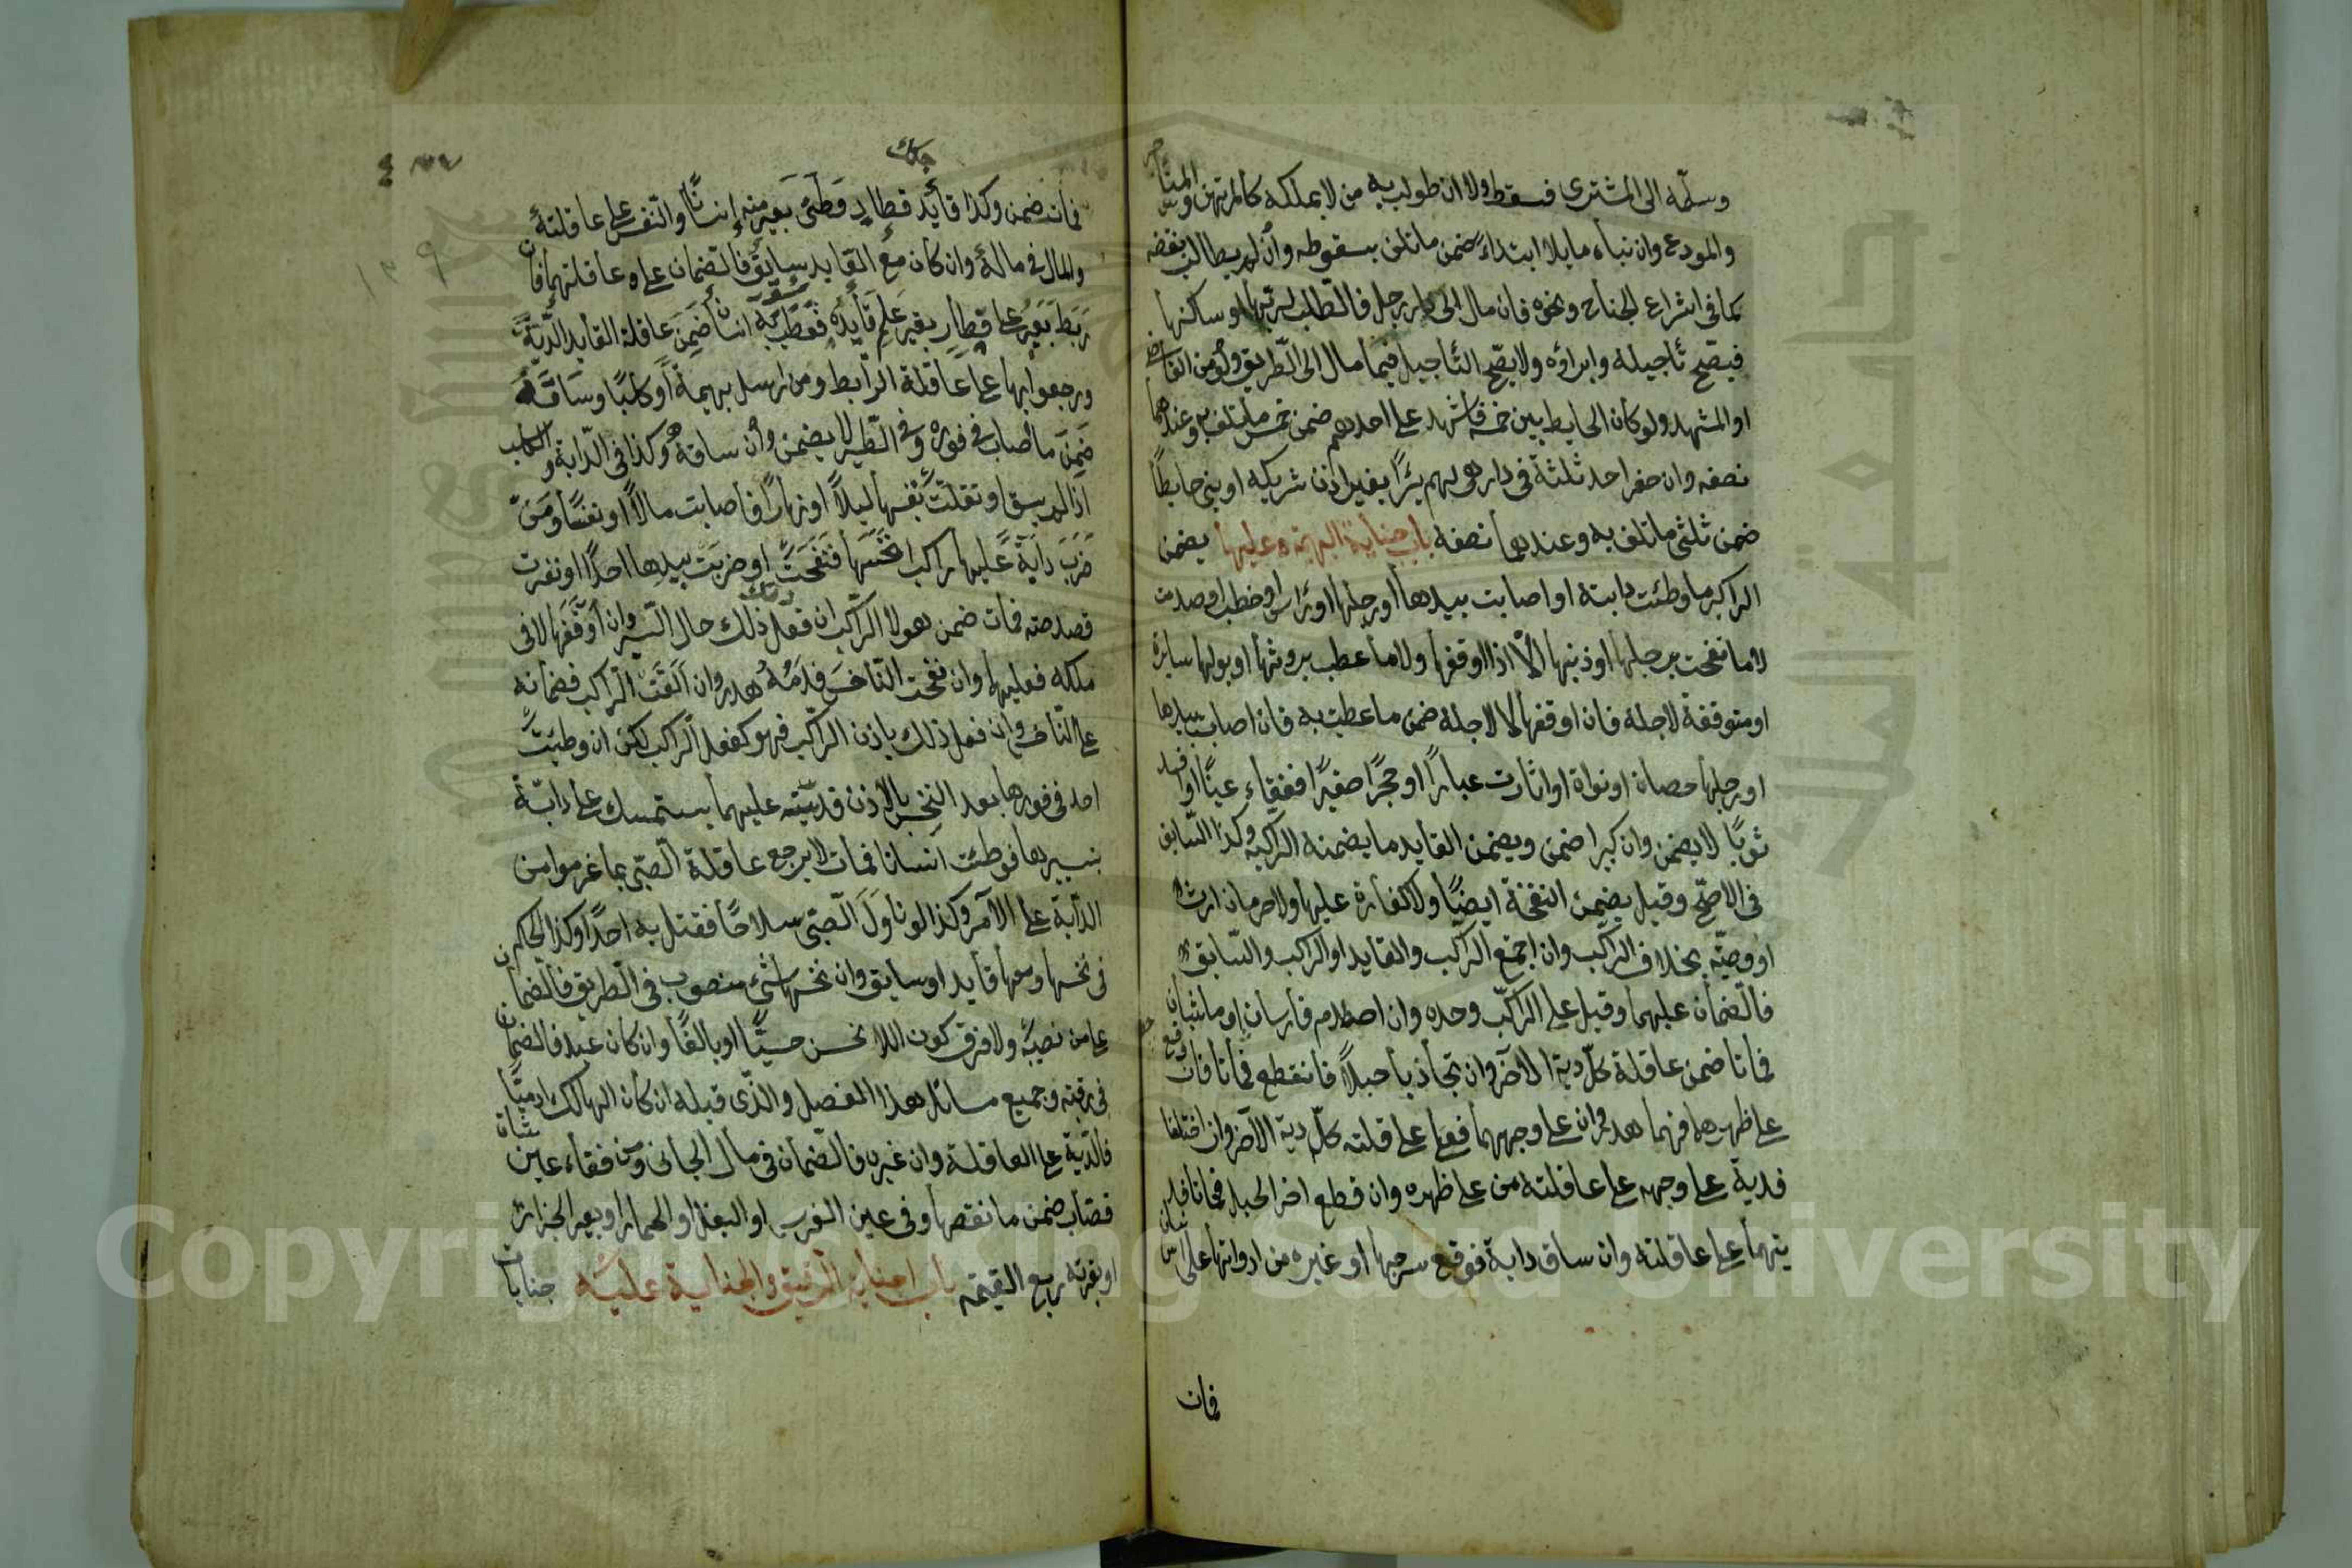 وسلّمه الى المشترى فسقط ولا ان طولب به من لا يملكه كالمرتهن والمستأجر
والمودع وان بناه مايلا ابتداءً ضمن ما تلف بسقوطه وان لم يطالب بنقضه
كما فى اشراع الجناح ونحوه فان مال الى دار رجل فالطلب لربها او ساكنها
فيصّح تأجيله وابراؤه ولا يصّح التأجيل فيما مال الى الطّريق ولو من القاضى
او المشهد ولو كان الحايط بين خمسة فاشهد على احدهم ضمن خمس ما تلف به وعندهما
نصفه وان حفر احد ثلثة فى دار هى لهم بئرًا بغير اذن شريكيه او بنى حايطًا
ضمن ثلثى ما تلف به وعندهما نصفه باب جناية البهيمة وعليها يضمن
الراكب ما وطئت دابته او اصابت بيدها او رجلها او رأسها او خطب او صدمت
لا ما نفحت برجلها او ذنبها الّا اذا اوقفها ولا ما عطب بروثها او بولها سايرة
او متوقفة لاجله فان اوقفها لا لاجله ضمن ما عطب به فان اصابت بيدها
او رجلها حصاة او نواة او اثارت غبارًا او حجرًا صغيرًا ففقاء عينًا او افسد
ثوبًا لا يضمن وان كبيرا ضمن ويضمن القايد ما يضمنه الراكب وكذا السّايق
فى الاصّح وقيل يضمن النفحة ايضًا ولا كفارة عليها ولا حرمان ارث
او وصيّة بخلاف الراكب وان اجتمع الراكب والقايد او الراكب والسّايق
فالضمان عليهما وقيل على الراكب وحده وان اصطدم فارسان او ماشيان
فماتا ضمن عاقلة كلّ دية الآخر وان تجاذبا حبلاً فانقطع فماتا فان وقع
على ظهرهما فهما هدر وان على وجههما فعلى عاقلته كلّ دية الآخر وان اختلفا
فدية على وجهه على عاقلته من على ظهره وان قطع اخر الحبل فماتا فد
يتهما على عاقلته وان ساق دابة فوقع سرجها او غيره من ادواتها على انسان
فمات
فمات ضمن وكذا قايد قطار وطئ بعير منه انسانًا والنفس على عاقلته
والمال فى ماله وان كان مع القايد سايق فالضمان على عاقلتهما فان
ربط بعير على قطار بغير علم قايده فعطب به انسان ضمن عاقلة القايد الدّية
ورجعوا بها على عاقلة الرابط ومن ارسل بهيمة او كلبًا وساقه
ضمن ما اصاب فى فوره وفى الطّير لا يضمن وان ساقه وكذا فى الدّابة والكلب
اذا لم يسق او تفلّتت بنفسها ليلاً او نهارًا فاصابت مالاً او نفسًا ومن
ضرب دابة عليها راكب او نخسها فنفحت او ضربت بيدها احدًا او نفرت
فصدمته فمات ضمن هو لا الراكب ان فعل ذلك حال السّير وان اوقفها لا فى
ملكه فعليهما وان نفحت النّاخس فدمه هدر وان القت الراكب فضمانه
على النّاخس وان فعل ذلك باذن الراكب فهو كفعل الراكب لكن ان وطئت
احد فى فورها بعد النخس بالاذن فديته عليهما يستمسك على دابّة
بسيرها فوطئت انسانا فمات لا يرجع عاقلة الصّبى بما غرموا من
الدابة على الآمر وكذا لو ناول الصّبى سلاحًا فقتل به احدًا وكذا الحكم
فى نخسها ومعها قايد او سايق وان نخسها شئ منصوب فى الطريق فالضمان
على من نصبه ولا فرق كون الناخس صبيًّا او بالغًا وان كان عبد فالضمان
فى رقبته وجميع مسائل هذا الفصل والذى قبله ان كان الهالك ادميًّا
فالدّية على العاقلة وان غيره فالضمان فى مال الجانى ومن فقاء عين شاة
قصاب ضمن ما نقصها وفى عين الفرس او البغل او الحمار او بعير الجزار
او بقرته ربع القيمة باب جناية الرقيق والجناية عليه جنايات
١٣٩
Copyright © King Saud University